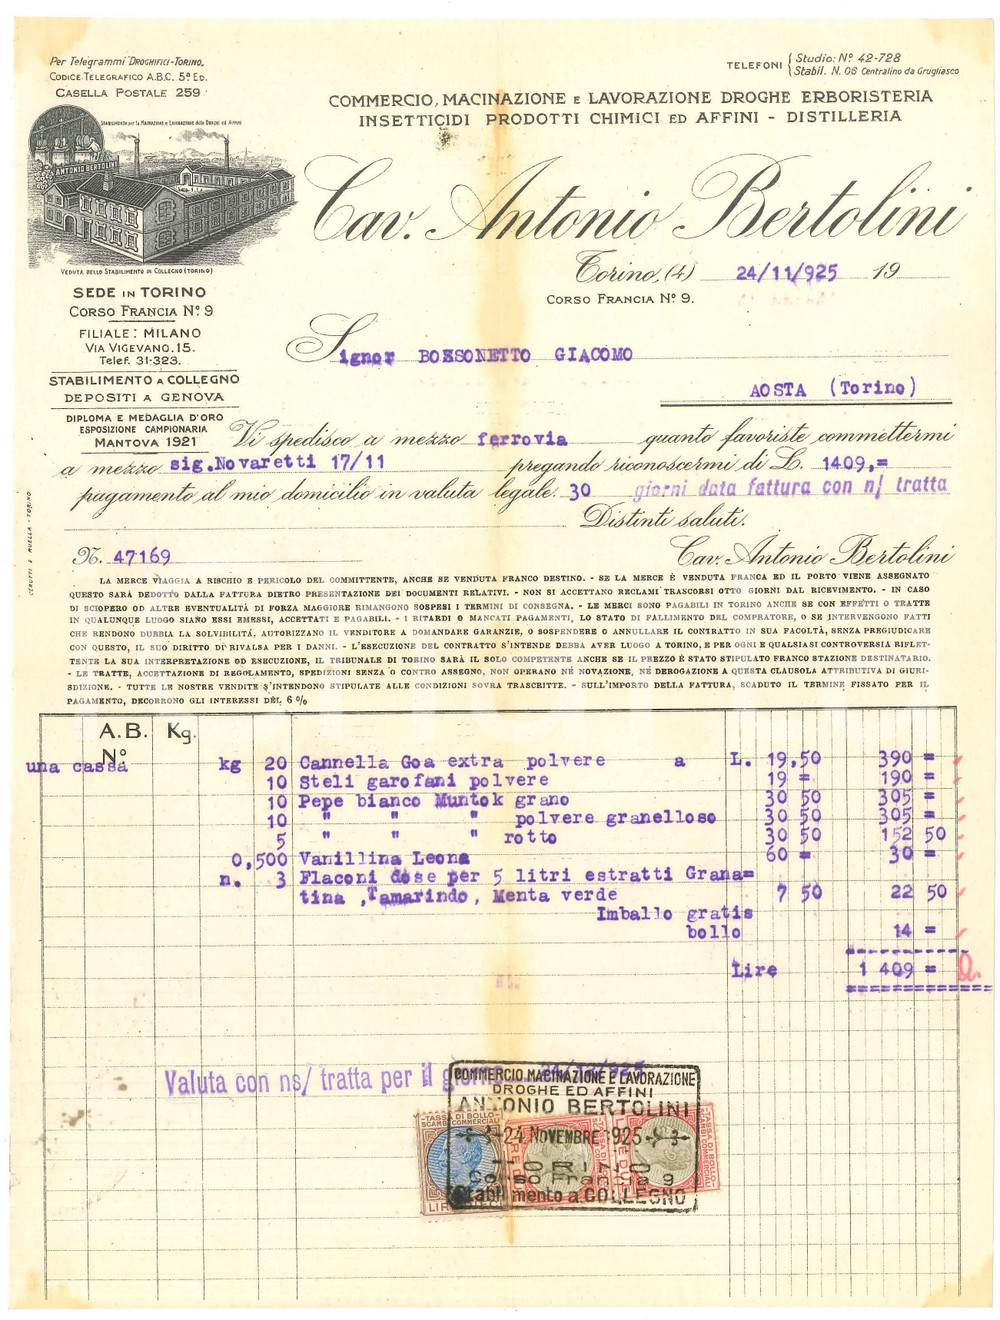 Per Telegrammi "DROGHIFICI-TORINO.
CODICE TELEGRAFICO A.B.C. 5ª ED.
CASELLA POSTALE 259
TELEFONI { Studio: Nº 42-728
Stabil. N. 06 Centralino da Grugliasco
COMMERCIO, MACINAZIONE E LAVORAZIONE DROGHE ERBORISTERIA
INSETTICIDI PRODOTTI CHIMICI ED AFFINI - DISTILLERIA
STABILIMENTO per la MACINAZIONE e LAVORAZIONE delle DROGHE ed AFFINI
ANTONIO BERTOLINI
VEDUTA DELLO STABILIMENTO IN COLLEGNO (TORINO)
Cav. Antonio Bertolini
Torino, (4) 24/11/925 19
CORSO FRANCIA Nº 9.
SEDE IN TORINO
CORSO FRANCIA Nº 9
FILIALE: MILANO
VIA VIGEVANO, 15.
Telef. 31-323.
STABILIMENTO A COLLEGNO
DEPOSITI A GENOVA
DIPLOMA E MEDAGLIA D'ORO
ESPOSIZIONE CAMPIONARIA
MANTOVA 1921
Signor BOZSONETTO GIACOMO
AOSTA (Torino)
Vi spedisco a mezzo ferrovia quanto favoriste commettermi
a mezzo sig.Novaretti 17/11 pregando riconoscermi di L. 1409,=
pagamento al mio domicilio in valuta legale. 30 giorni data fattura con n/ tratta
Distinti saluti.
N. 47169 Cav. Antonio Bertolini
LA MERCE VIAGGIA A RISCHIO E PERICOLO DEL COMMITTENTE, ANCHE SE VENDUTA FRANCO DESTINO. - SE LA MERCE È VENDUTA FRANCA ED IL PORTO VIENE ASSEGNATO
QUESTO SARÀ DEDOTTO DALLA FATTURA DIETRO PRESENTAZIONE DEI DOCUMENTI RELATIVI. - NON SI ACCETTANO RECLAMI TRASCORSI OTTO GIORNI DAL RICEVIMENTO. - IN CASO
DI SCIOPERO OD ALTRE EVENTUALITÀ DI FORZA MAGGIORE RIMANGONO SOSPESI I TERMINI DI CONSEGNA. - LE MERCI SONO PAGABILI IN TORINO ANCHE SE CON EFFETTI O TRATTE
IN QUALUNQUE LUOGO SIANO ESSI EMESSI, ACCETTATI E PAGABILI. - I RITARDI O MANCATI PAGAMENTI, LO STATO DI FALLIMENTO DEL COMPRATORE, O SE INTERVENGONO FATTI
CHE RENDONO DUBBIA LA SOLVIBILITÀ, AUTORIZZANO IL VENDITORE A DOMANDARE GARANZIE, O SOSPENDERE O ANNULLARE IL CONTRATTO IN SUA FACOLTÀ, SENZA PREGIUDICARE
CON QUESTO, IL SUO DIRITTO DI RIVALSA PER I DANNI. - L'ESECUZIONE DEL CONTRATTO S'INTENDE DEBBA AVER LUOGO A TORINO, E PER OGNI E QUALSIASI CONTROVERSIA RIFLET-
TENTE LA SUA INTERPRETAZIONE OD ESECUZIONE, IL TRIBUNALE DI TORINO SARÀ IL SOLO COMPETENTE ANCHE SE IL PREZZO È STATO STIPULATO FRANCO STAZIONE DESTINATARIO.
- LE TRATTE, ACCETTAZIONE DI REGOLAMENTO, SPEDIZIONI SENZA O CONTRO ASSEGNO, NON OPERANO NÉ NOVAZIONE, NÉ DEROGAZIONE A QUESTA CLAUSOLA ATTRIBUTIVA DI GIURI-
SDIZIONE. - TUTTE LE NOSTRE VENDITE S'INTENDONO STIPULATE ALLE CONDIZIONI SOVRA TRASCRITTE. - SULL'IMPORTO DELLA FATTURA, SCADUTO IL TERMINE FISSATO PER IL
PAGAMENTO, DECORRONO GLI INTERESSI DEL 6 %
A.B. Kg.
Nº
una cassa kg 20 Cannella Goa extra polvere a L. 19,50 390 =
10 Steli garofani polvere 19 = 190 =
10 Pepe bianco Muntok grano 30 50 305 =
10 " " " polvere granelloso 30 50 305 =
5 " " " rotto 30 50 152 50
0,500 Vanillina Leona 60 = 30 =
n. 3 Flaconi dose per 5 litri estratti Grana=
tina ,Tamarindo, Menta verde 7 50 22 50
Imballo gratis
bollo 14 =
Lire 1 409 =
Valuta con ns/ tratta per il giorno
COMMERCIO, MACINAZIONE E LAVORAZIONE
DROGHE ED AFFINI
ANTONIO BERTOLINI
24 NOVEMBRE 1925
TORINO
Corso Francia 9
Stabilimento a COLLEGNO
TASSA DI BOLLO
SCAMBI COMMERCIALI